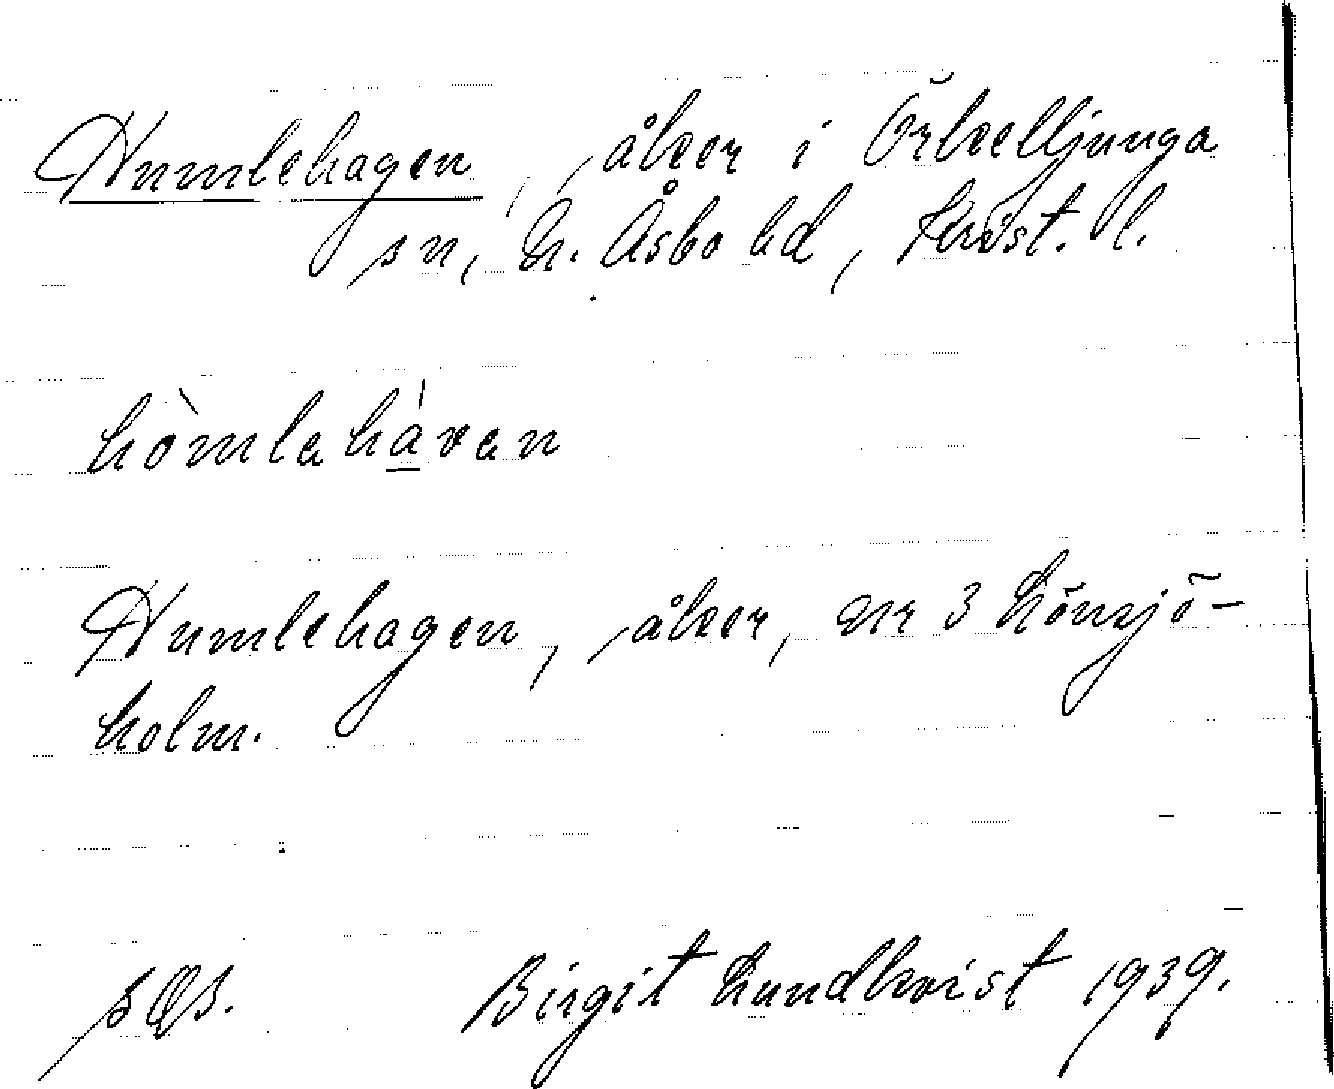 Humlehagen, åker i Örkelljunga
sn, N. Åsbo hd, Krist. l.
hòmlahávan
Humlehagen, åker, av 3 Lönsjö-
holm.
Birgit Lundkvist 1939.